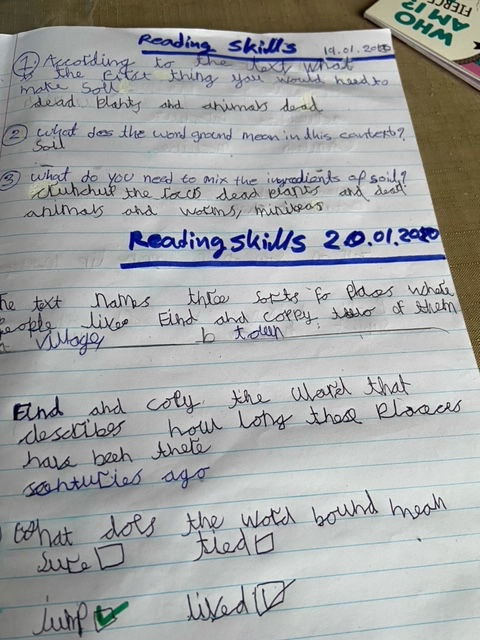 WHO
AM I?
FIERCE
Reading skills 19.01.2020
1 According to the text what
is the first thing you would need to
make Soil
dead plants and animals dead
2 what does the word ground mean in this context?
Soil
3 what do you need to mix the ingredients of soil?
the rocs dead plants and dead
animals and worms, minibeas
Reading skills 20.01.2020
he text names three sorts fo places where
people live Find and coppy two of them
village b town
Find and copy the word that
describes how long these Placces
have been there
senturies ago
What does the word bound mean
Sure tied
jump lived